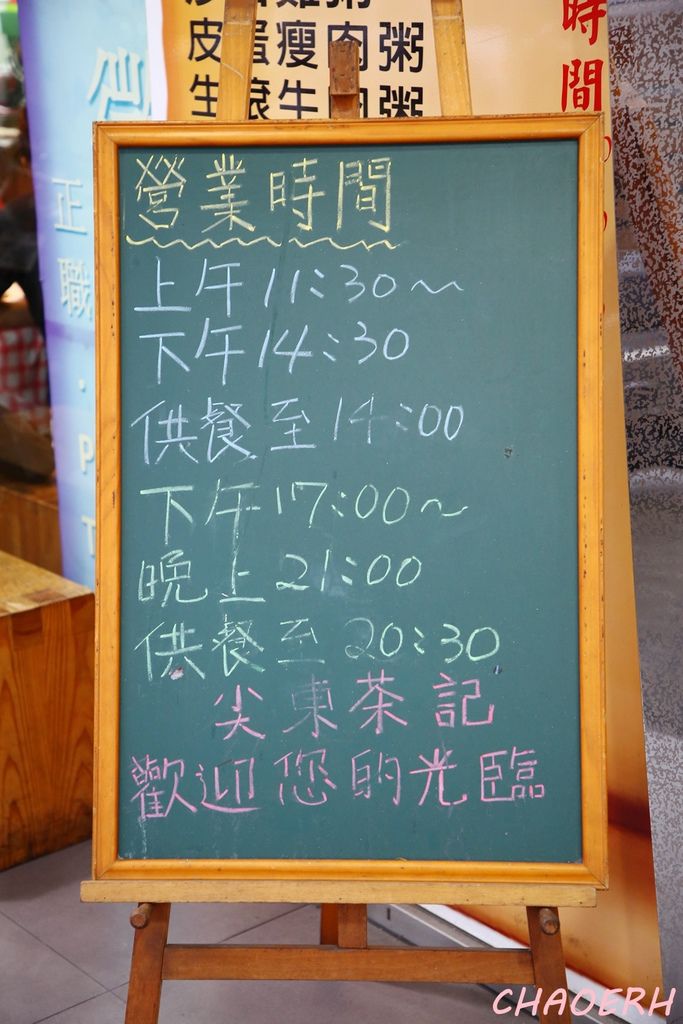 皮蛋瘦肉粥
生滾牛肉粥
時間
正職
營業時間
上午11:30~
下午14:30
供餐至14:00
下午17:00~
晚上21:00
供餐至20:30
尖東茶記
歡迎您的光臨
CHAOERH